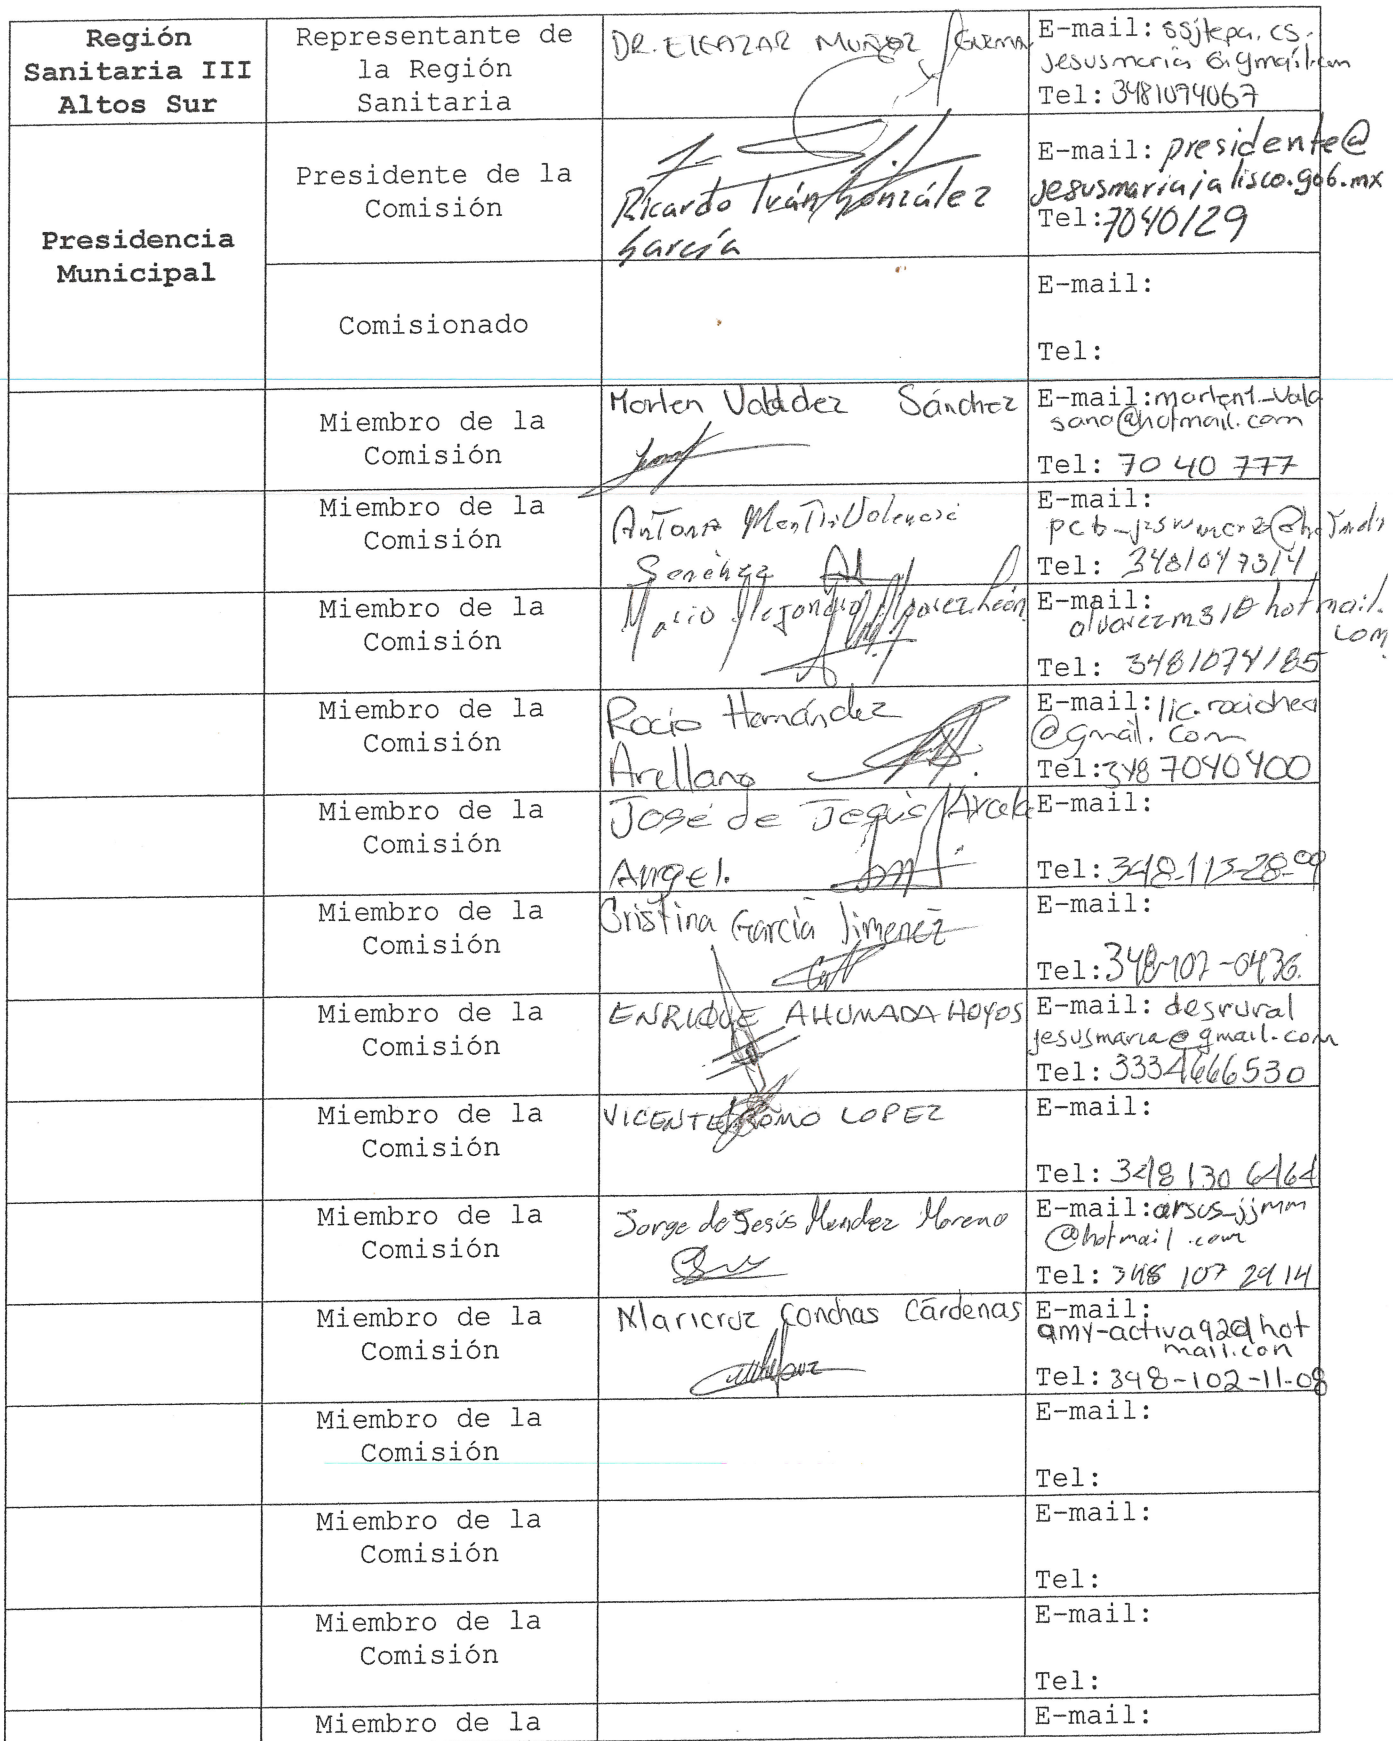 Región
Sanitaria III
Altos Sur
Representante de
la Región
Sanitaria
DR. ELEAZAR MUÑOZ
E-mail: ssjtepa.cs.
jesusmaria @gmail.com
Tel: 3481074067
Presidencia
Municipal
Presidente de la
Comisión
Ricardo Iván González
García
E-mail: presidente@
jesusmariajalisco.gob.mx
Tel: 7040129
Comisionado
E-mail:
Tel:
Miembro de la
Comisión
Marlen Valadez Sánchez
E-mail: marlen1_vald
sano@hotmail.com
Tel: 70 40 777
Miembro de la
Comisión
Antonio
Sánchez
E-mail:
Tel: 3481047314
Miembro de la
Comisión
Mario Alejandro Alvarez León
E-mail:
alvarezm310 hotmail.
com
Tel: 3481074185
Miembro de la
Comisión
Rocio Hernández
Arellano
E-mail: lic.rociohea
@gmail.com
Tel: 348 7040400
Miembro de la
Comisión
José de Jesús
Angel.
E-mail:
Tel: 348-113-28-99
Miembro de la
Comisión
Cristina García Jimenez
E-mail:
Tel: 348-107-0436.
Miembro de la
Comisión
ENRIQUE AHUMADA HOYOS
E-mail: desrural
jesusmaria@gmail.com
Tel: 3334666530
Miembro de la
Comisión
VICENTE ROMO LOPEZ
E-mail:
Tel: 348 130 6464
Miembro de la
Comisión
Jorge de Jesús Mendez Moreno
E-mail: arscs_jjmm
@hotmail.com
Tel: 348 107 2914
Miembro de la
Comisión
Maricruz Conchas Cárdenas
E-mail:
amy-activa92@hot
mail.con
Tel: 348-102-11-08
Miembro de la
Comisión
E-mail:
Tel:
Miembro de la
Comisión
E-mail:
Tel:
Miembro de la
Comisión
E-mail:
Tel:
Miembro de la
E-mail: